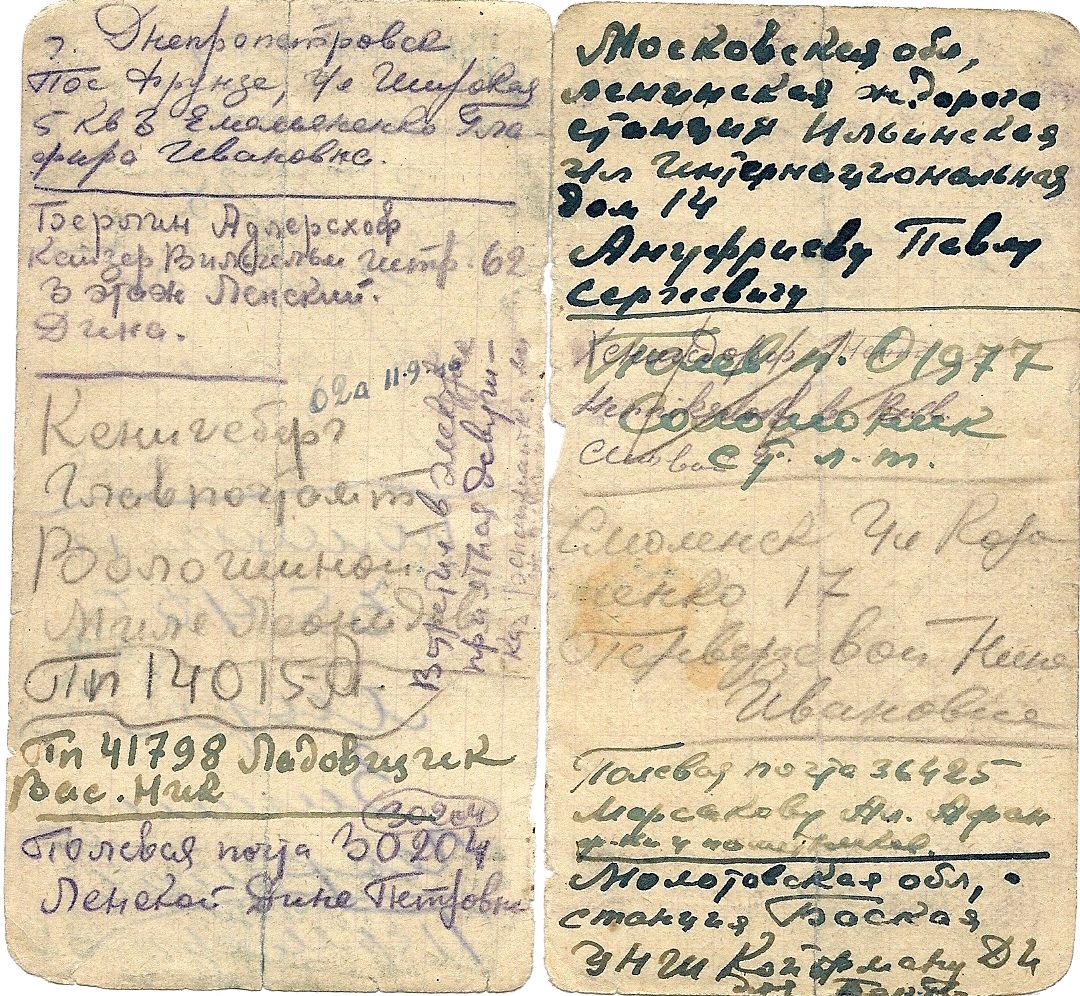 г. Днепропетровск
Пос Фрунзе, Ул Широкая
5 кв 3 Емельяненко Гла-
фира Ивановна.
Берлин Адлерсхоф
Кайзер Вильгельм штр. 62
3 этаж Ленский.
Дина.
02а 11.9
Кенигсберг
Главпочтамт
Волошиной
Миле Леонидов
Пп 14015
Встретил в электрич
приятная девуш-
ка
Пп 41798 Ладовищук
Вас. Ник
30204
Полевая почта 30204
Ленской Дине Петровне
Московская обл,
Ленинская ж.дорога
станция Ильинская
Ул Интернациональная
Дом 14
Ануфриеву Павлу
Сергеевичу
п. 01977
Соломоник
ст. л-т.
Смоленск Ул
17
Нине
Ивановне
Полевая почта 36425
Марсакову Ал. Афан
Молотовская обл,
станция
УНШ Койфману ДИ